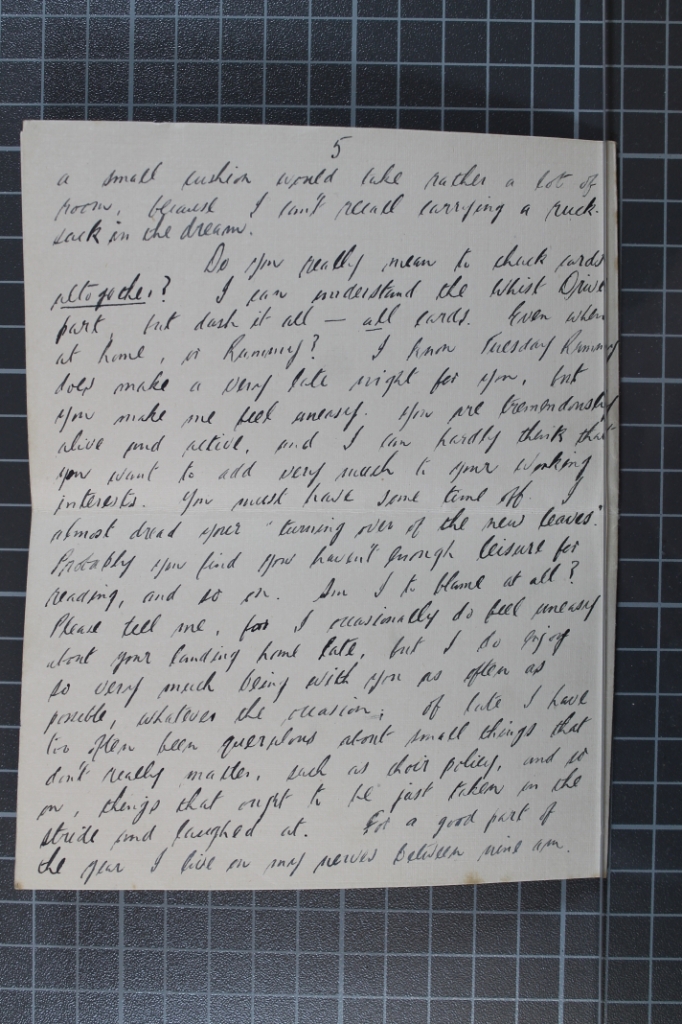 5
a small cushion would take rather a lot of
room, because I can't recall carrying a ruck-
sack in the dream.
Do you really mean to chuck cards
altogether? I can understand the Whist Drive
part, but dash it all — all cards. Even when
at home, or Rummy? I know Tuesday Rummy
does make a very late night for you, but
you make me feel uneasy. You are tremendously
alive and active, and I can hardly think that
you want to add very much to your working
interests. You must have some time off. I
almost dread your "turning over of the new leaves".
Probably you find you haven't enough leisure for
reading, and so on. Am I to blame at all?
Please tell me, for I occasionally do feel uneasy
about your landing home late, but I do enjoy
so very much being with you as often as
possible, whatever the occasion; of late I have
too often been querulous about small things that
don't really matter, such as choir policy, and so
on, things that ought to be just taken in the
stride and laughed at. For a good part of
the year I live on my nerves between nine am.